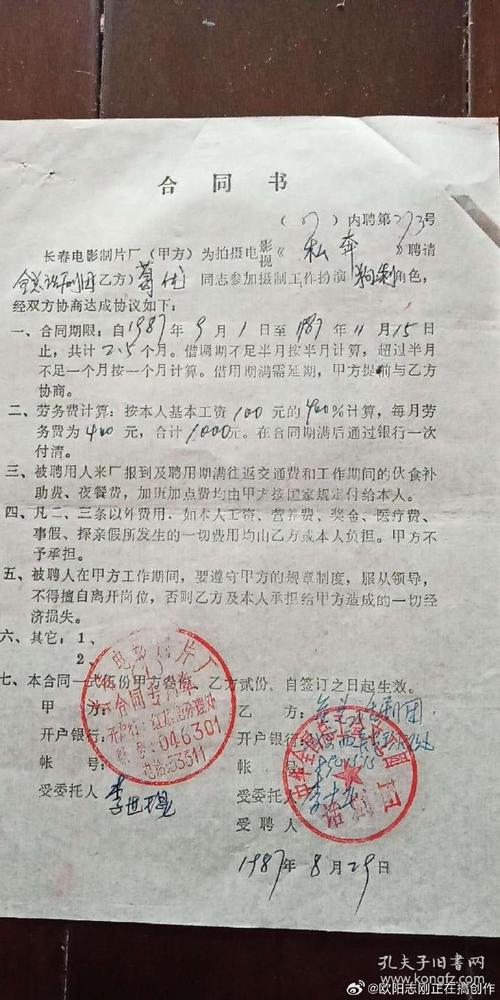 合同书
(87)内聘第273号
长春电影制片厂(甲方)为拍摄电影视《私奔》聘请
全总话剧团乙方)葛优同志参加摄制工作扮演狗剩角色,
经双方协商达成协议如下:
一、合同期限:自1987年9月1日至1987年11月15日
止,共计2.5个月。借调期不足半月按半月计算,超过半月
不足一个月按一个月计算。借用期满需延期,甲方提前与乙方
协商。
二、劳务费计算:按本人基本工资100元的400%计算,每月劳
务费为400元,合计1000元。在合同期满后通过银行一次
付清。
三、被聘用人来厂报到及聘用期满往返交通费和工作期间的伙食补
助费、夜餐费,加班加点费均由甲方按国家规定付给本人。
四、凡二、三条以外费用,如本人工资、营养费、奖金、医疗费、
事假、探亲假所发生的一切费用均由乙方或本人负担。甲方不
予承担。
五、被聘人在甲方工作期间,要遵守甲方的规章制度,服从领导,
不得擅自离开岗位,否则乙方及本人承担给甲方造成的一切经
济损失。
六、其它:1、
2、
七、本合同一式伍份甲方叁份,乙方贰份,自签订之日起生效。
甲方:
开户银行:
帐号:
受委托人
合同专用章
046301
电话53511
乙方:全总话剧团
开户银行:
帐号:
受委托人
受聘人
话剧团
1987年8月29日
孔夫子旧书网
@欧阳志刚正在搞创作